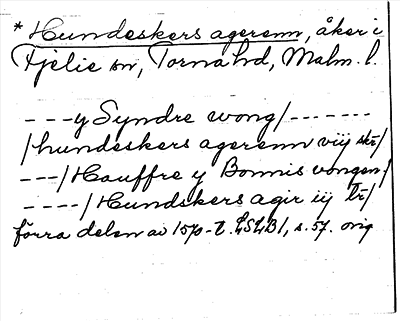 * Hundeskers agerenn, åker i
Fjelie sn, Torna hd, Malm. l.
---y Syndre wong/-------
/hundeskers agerenn viij skr/
---/Hauffre y Bonnis vongen/
----/Hundskers agir iij tr/
förra delen av 1570-t. LSLB1, s. 57. orig